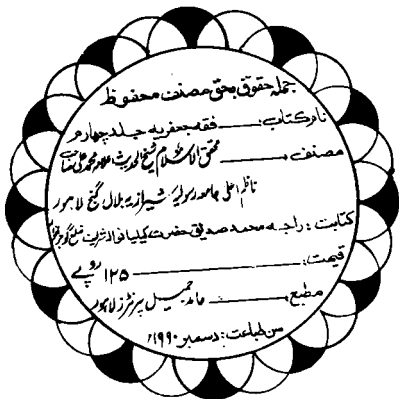 جملہ حقوق بحق مصنف محفوظ
نام کتاب: فقہ جعفریہ جلد چہارم
مصنف: محقق الاسلام شیخ الحدیث علامہ محمد علی صاحب
ناظم اعلیٰ جامعہ رسولیہ شیرازیہ بلال گنج لاہور
کتابت: راجہ محمد صدیق حضرت کیلیانوالہ شریف ضلع گوجرانوالہ
قیمت: ۱۲۵ روپے
مطبع: حامد جمیل پرنٹرز لاہور
سن طباعت: دسمبر ۱۹۹۰ء